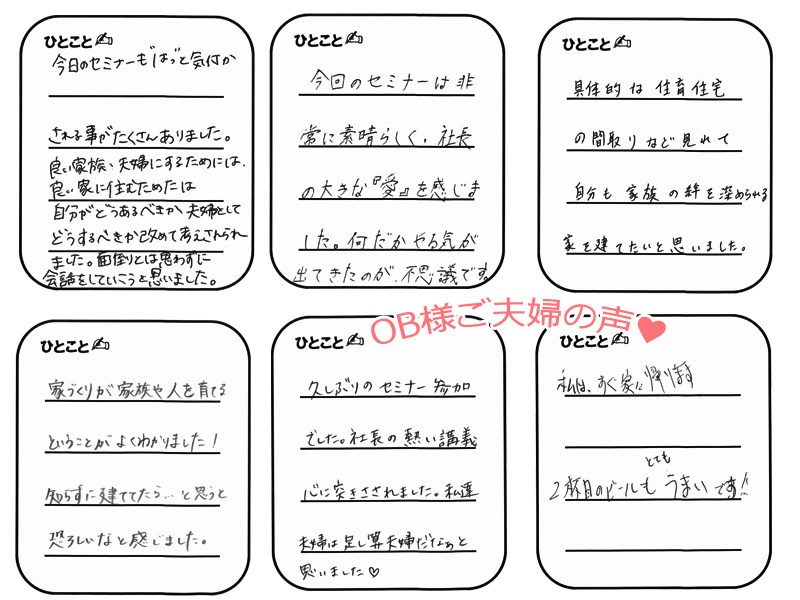 ひとこと
今日のセミナーも"はっ"と気付か
される事がたくさんありました。
良い家族、夫婦にするためには、
良い家に住むためたは
自分がどうあるべきか 夫婦として
どうするべきか改めて考えさせられ
ました。面倒とは思わずに
会話をしていこうと思いました。
ひとこと
今回のセミナーは非
常に素晴らしく、社長
の大きな『愛』を感じま
した。何だかやる気が
出てきたのが、不思議です
ひとこと
具体的な 住育住宅
の間取りなど見れて
自分も 家族の絆を深められる
家を建てたいと思いました。
OB様ご夫婦の声
ひとこと
家づくりが家族や人を育てる
ということがよくわかりました!
知らずに建ててたら…と思うと
恐ろしいなと感じました。
ひとこと
久しぶりのセミナー参加
でした。社長の熱い講義
心に突きさされました。私達
夫婦は足し算夫婦だなぁと
思いました♡
ひとこと
私は、すぐ家に帰ります
とても
2杯目のビールも うまいです!!